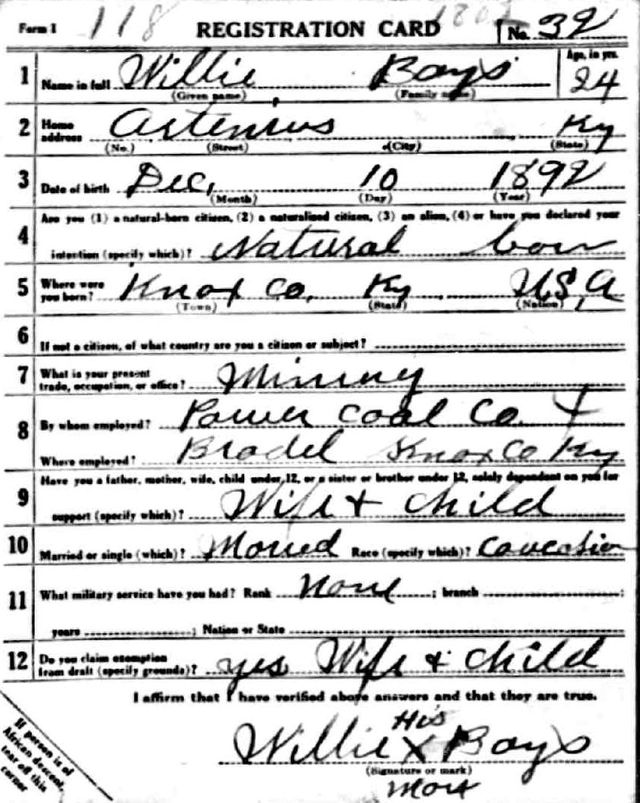 Form 1 118 REGISTRATION CARD No. 32
1 Name in full Willie Bays Age, in yrs. 24
(Given name) (Family name)
2 Home address Artemus Ky
(No.) (Street) (City) (State)
3 Date of birth Dec, 10 1892
(Month) (Day) (Year)
Are you (1) a natural-born citizen, (2) a naturalized citizen, (3) an alien, (4) or have you declared your
4 intention (specify which)? Natural born
5 Where were you born? Knox Co. Ky. U,S,A
(Town) (State) (Nation)
6 If not a citizen, of what country are you a citizen or subject?
7 What is your present trade, occupation, or office? Mining
8 By whom employed? Power Coal Co. +
Where employed? Knox Co Ky
Have you a father, mother, wife, child under 12, or a sister or brother under 12, solely dependent on you for
9 support (specify which)? Wife + child
10 Married or single (which)? Maried Race (specify which)? Caucasian
11 What military service have you had? Rank None ; branch ;
years ; Nation or State
12 Do you claim exemption from draft (specify grounds)? yes Wife + child
I affirm that I have verified above answers and that they are true.
His
Willie X Bays
(Signature or mark)
Mark
If person is of
African descent,
tear off this
corner